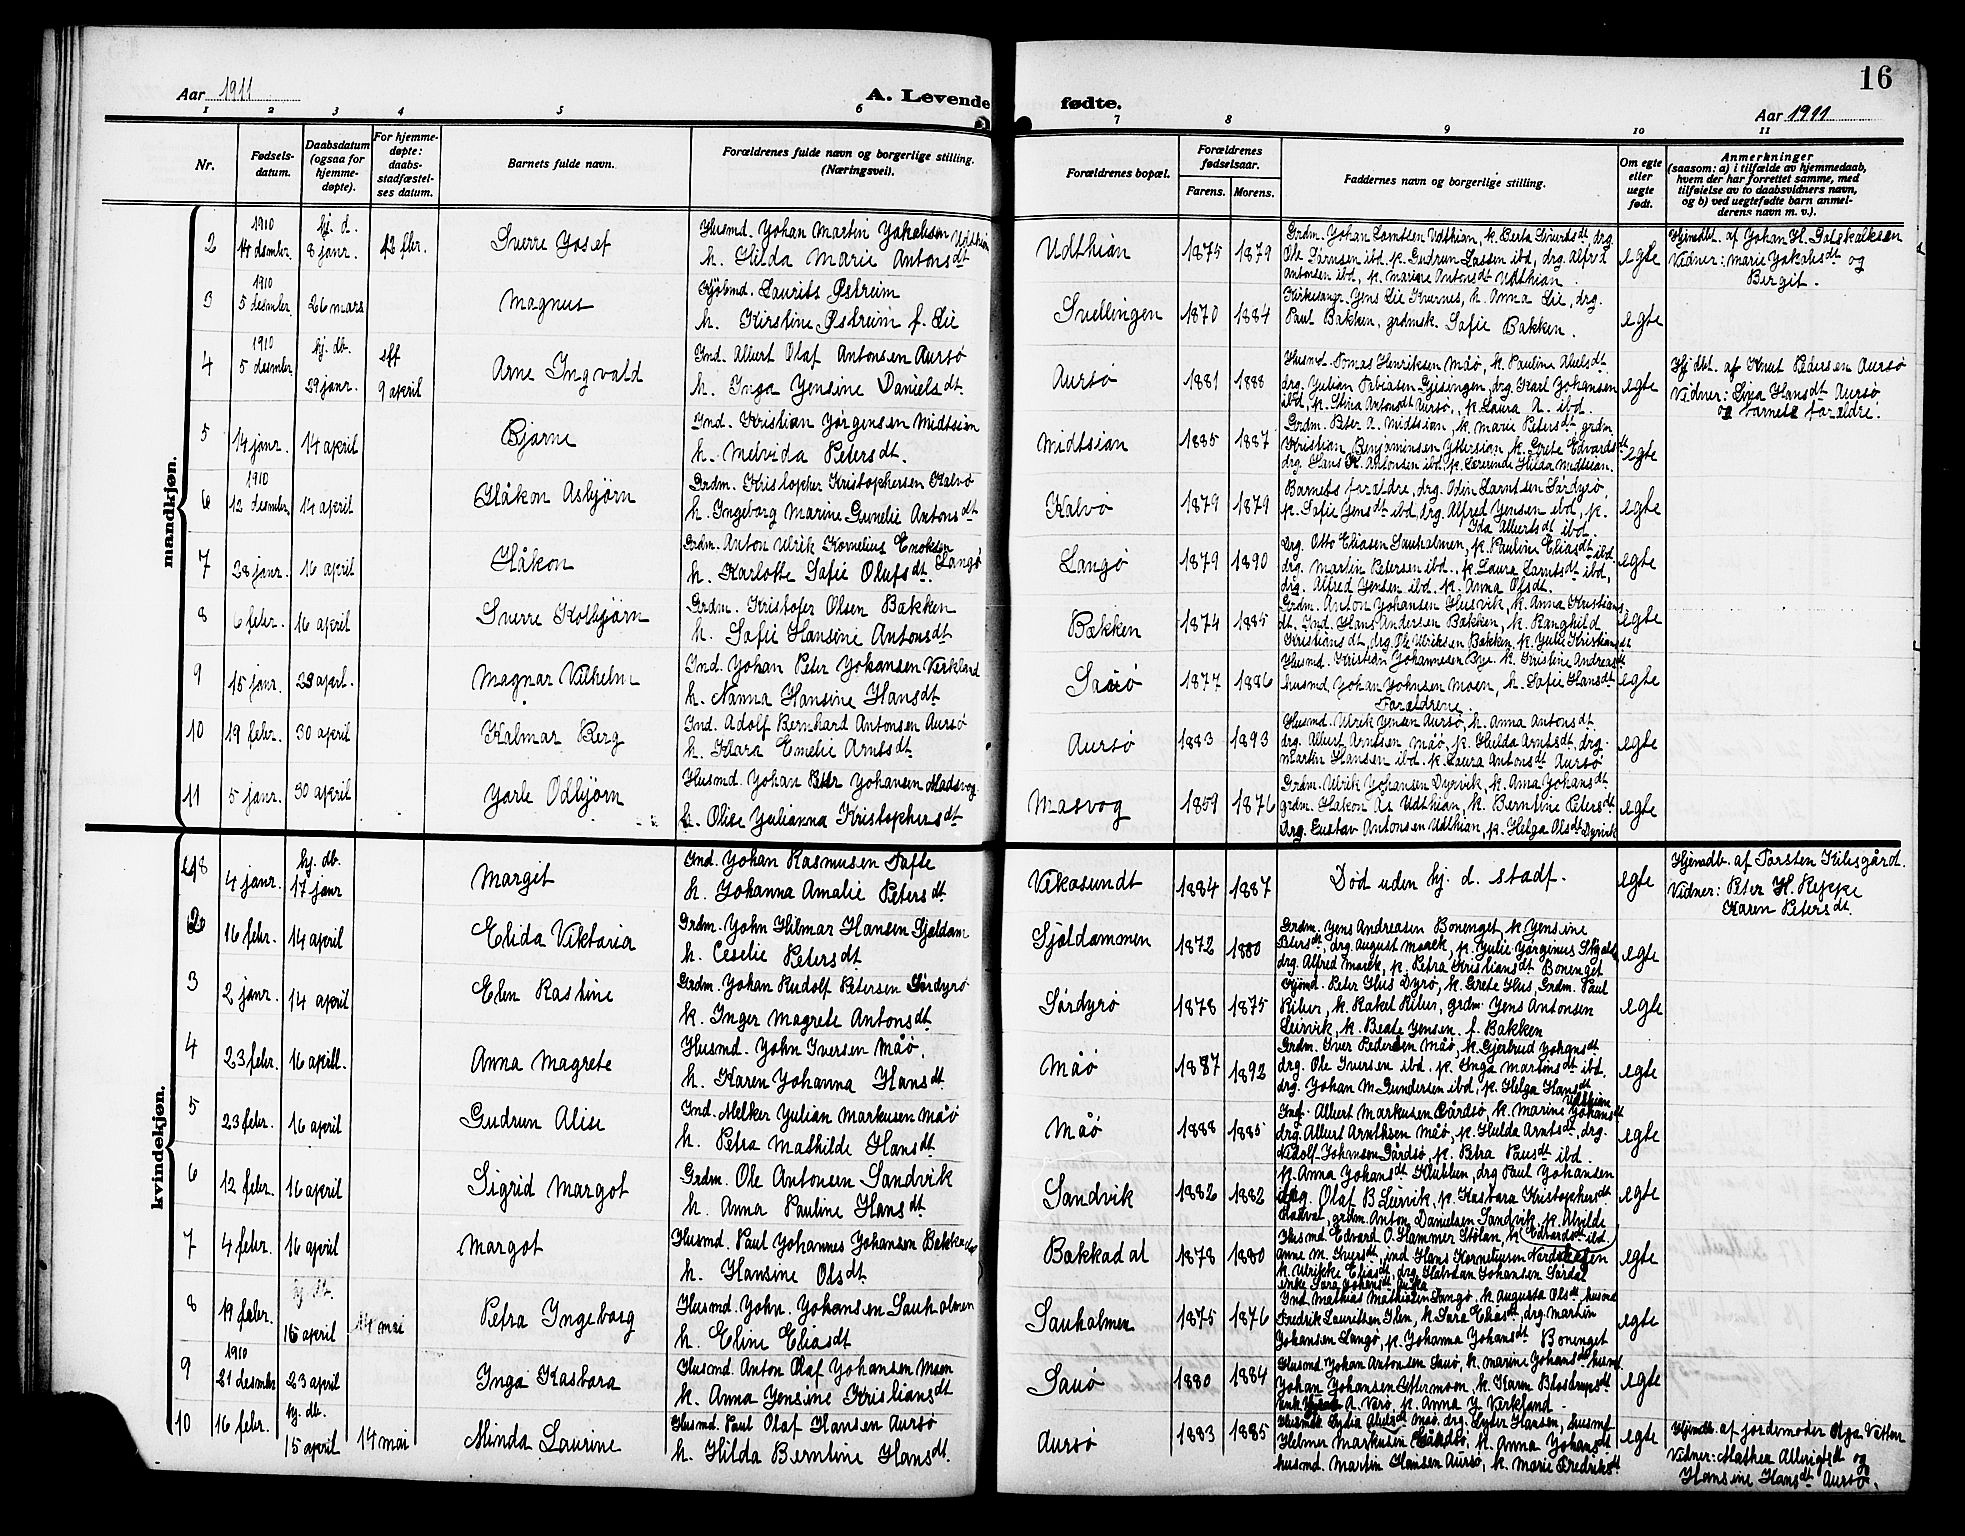 16
Aar 1911
A. Levende fødte.
Aar 1911
1 2 3 4 5 6 7 8 9 10 11
Nr.
Fødsels-
datum.
Daabsdatum
(ogsaa for
hjemme-
døpte).
For hjemme-
døpte:
daabs-
stadfæstel-
ses datum.
Barnets fulde navn.
Forældrenes fulde navn og borgerlige stilling.
(Næringsvei).
Forældrenes bopæl.
Forældrenes
fødselsaar.
Farens. Morens.
Faddernes navn og borgerlige stilling.
Om egte
eller
uegte
født.
Anmerkninger
(saasom: a) i tilfælde av hjemmedaab,
hvem der har forrettet samme, med
tilføielse av to daabsvidners navn,
og b) ved uegtefødte barn anmel-
derens navn m. v.).
mandkjøn.
2 1910 14 desmber hj. d. 8 janr. 12 fbr. Sverre Josef
Husmd. Johan Martin Jakobsen Udthian
h. Hilda Marie Antonsdt
Udthian 1875 1879
Grdm. Johan Larntsen Udthian, k. Berta Sivertsdt, drg.
Ole Larnsen ibd, p. Gudrun Lassen ibd, drg. Alfred
Antonsen ibd, p. Marine Antonsdt Udthian.
egte
Hjemdbt. af Johan H. Gotskalksen
Vidner: Marie Jakobsdt og
Bergit.
3 1910 5 desmber 26 mars Magnus
Kjøbmd. Laurits Østreim
h. Kirstine Østreim f. Lie
Svellingen 1870 1884
Kirkesangr. Jens Lie Kvernes, h. Anna Lie, drg.
Paul Bakken, grdmsk. Sofie Bakken.
egte
4 1910 5 desmber hj. db. 29 janr. eff 9 april Arne Ingvald
Ind. Albert Olaf Antonsen Aursø
h. Inga Jensine Danielsdt
Aursø 1881 1888
Husmd. Tomas Henriksen Måø, k. Pauline Abelsdt
drg. Julian Tobiasen Gjisingen, drg. Karl Johansen
ibd, p. Stina Antonsdt Aursø, p. Laura A. ibd.
egte
Hj dbt. af Knut Pedersen Aursø
Vidner: Lina Hansdt Aursø
og barnets foraldre.
5 14 janr. 14 april Bjarne
Ind. Kristian Jørgensen Midtsian
h. Melvida Petersdt.
Midtsian 1885 1887
Grdm. Peter A. Midtsian, k. Marie Petersdt, grdm
Kristian Benjaminsen Yttersian, k. Grete Edvardsdt
drg. Hans K. Antonsen ibd. p. Lærerinde Hilda Midtsian.
egte
6 1910 12 desmber 14 april Håkon Asbjørn
Grdm. Kristopher Kristophersen Kalvø
h. Ingeborg Marine Gunelie Antonsdt
Kalvø 1879 1879
Barnets foraldre, drg. Odin Larntsen Sørdyrø,
p. Sofie Jensdt ibd, drg. Alfred Jensen ibd, p.
Ida Albertsdt ibd.
egte
7 28 janr. 16 april Håkon
Grdm. Anton Ulrik Kornelius Enoksen
h. Karlotte Sofie Olufsdt. Langø
Langø 1879 1890
Drg. Otto Eliasen Sauholmen, p. Pauline Eliasdt ibd
drg. Martin Petersen ibd., p. Laura Larntsdt ibd,
drg. Alfred Jensen ibd. p. Anna Olsdt.
egte
8 6 febr. 16 april Sverre Kolbjørn
Grdm. Kristofer Olsen Bakken
h. Sofie Hansine Antonsdt
Bakken 1874 1885
Grdm. Anton Johansen Husvik, k. Anna Kristians-
dt. Ind. Hans Andersen Bakken, k. Ranghild
Kristiansdt, drg. Ole Ulriksen Bakken, p. Julie Kristiansdt
egte
9 15 janr. 23 aprl. Magnar Vilhelm
Ind. Johan Peter Johansen Verkland
h. Nanna Hansine Hansdt
Sauø 1877 1886
Husmd. Kristian Johannesen Bye. k. Kristine Andreasdt
husmd. Johan Johnsen Moen, k. Sofie Hansdt
Foraldrene.
egte
10 19 febr. 30 april Halmar Berg
Ind. Adolf Bernhard Antonsen Aursø
h. Klara Emelie Arntsdt
Aursø 1883 1893
Husmd. Ulrik Jensen Aursø, k. Anna Antonsdt
drg. Albert Arntsen Måø, p. Hulda Arntsdt, drg.
Martin Hansen ibd. p. Laura Antonsdt Aursø
egte
11 5 janr. 30 april Jarle Odbjørn
Husmd. Johan Peter Johansen Madsvog
h. Olise Julianna Kristophersdt
Masvog 1859 1876
Grdm. Ulrik Johansen Dyrvik, k. Anna Johansdt
grdm. Håkon As Udthian, k. Berntine Petersdt
Drg. Gustav Antonsen Udthian, p. Helga Olsdt Dyrvik
egte
kvindekjøn.
4 janr. hj. db. 17 janr Margit
Ind. Johan Rasmusen Tafte
h. Johanna Amalie Petersdt
Vikasundt 1884 1887
Død uden hj. d. stadf.
egte
Hjemdb. af Torsten Kilsgård.
Vidner: Peter H. Reppe
Karen Petersdt.
2 16 febr. 14 april Elida Viktoria
Grdm. John Hilmar Hansen Sjøldam
h. Ceselie Petersdt
Sjøldammen 1872 1880
Grdm. Jens Andreasen Bonenget, k. Jensine
Petersdt, drg. August Marek, p. Julie Jørginus
drg. Alfred Marek, p. Petra Kristiansdt Bonenget
egte
3 2 janr. 14 april Elen Rastine
Grdm. Johan Rudolf Petersen Sørdyrø
k. Inger Magrete Antonsdt
Sørdyrø 1878 1875
Kjømd. Peter Hus Dyrø, k. Grete Hus, Grdm. Paul
Riber, k. Rakel Riber, grdm. Jens Antonsen
Leirvik, k. Beate Jensen. f. Bakken
egte
4 23 febr. 16 aprill. Anna Magrete
Husmd. John Iversen Måø.
h. Karen Johanna Hansdt.
Måø 1887 1892
Grdm. Iver Pedersen Måø, k. Gjertrud Johansdt
drg. Ole Iversen ibd. p. Inga Martinsdt ibd.
drg. Johan M Gundersen ibd, p. Helga Hansdt
Udthian
egte
5 23 febr. 16 april Gudrun Alise
Ind. Melker Julian Markusen Måø
h. Petra Mathilde Hansdt
Måø 1888 1885
Ind. Albert Markusen Gårdsø, k. Marine Johansdt
drg. Albert Arntksen Måø, p. Hulda Arntsdt, drg.
Nidolf Johnsen Gårdsø, p. Petra Paulsdt ibd.
egte
6 12 febr. 16 april Sigrid Margot
Grdm. Ole Antonsen Sandvik
h. Anna Pauline Hansdt
Sandvik 1882 1882
p. Anna Johansdt Klubben, drg Paul Johansen
drg. Olaf B Leirvik, p. Kasbara Kristophersdt
grdm. Anton Danielsen Sandvik, p. Alvilde
Edvardsdt ibd.
egte
7 4 febr. 16 april Margot
Husmd. Paul Johannes Johansen Bakkadal
h. Hansine Olsdt
Bakkadal 1878 1880
Husmd. Edvard O. Hammer Stølan, k.
Anne M. Iversdt, ind Hans Korneliusen Nordskagen
k. Ulrikke Eliasdt, drg. Halvdan Johansen Sørdal
enke Sara Johansdt
egte
8 19 febr. hj. db. 15 april 14 mai Petra Ingeborg
Husmd. John. Johansen Sauholmen
h. Eline Eliasdt
Sauholmen 1875 1876
Ind. Mathias Mathiasen Langø, k. Augusta Olsdt, husmd
Fredrik Lauritsen Ilen, k. Sara Eliasdt, drg. Martin
Johansen Langø, p. Johanna Johansdt Bonenget
egte
9 1910 21 desmber 23 april Inga Kasbara
Husmd. Anton Olaf Johansen Moen
k. Anna Jensine Kristiansdt
Sauø 1880 1884
Husmd. Johan Antonsen Sauø, k. Marine Johansdt husmd.
Johan Johansen Ittermoen, k. Karen Blostrupsdt
A. Varø, p. Anna J. Verkland.
egte
10 16 febr. hj. db. 15 april 14 mai Minda Laurine
Husmd. Paul Olaf Hansen Aursø
h. Hilda Berntine Hansdt.
Aursø 1883 1885
Lydia Abelsdt Måø, drg. Lyder Hansen, husmd
Helmer Markusen Gårdsø, k. Anna Johansdt
husmd. Martin Hansen Aursø, k. Marie Fredriksdt.
egte
Hjemdb. af jordemoder Olga Vatten
Vidner: Mathea Albrigtsdt og
Hansine Hansdt Aursø.